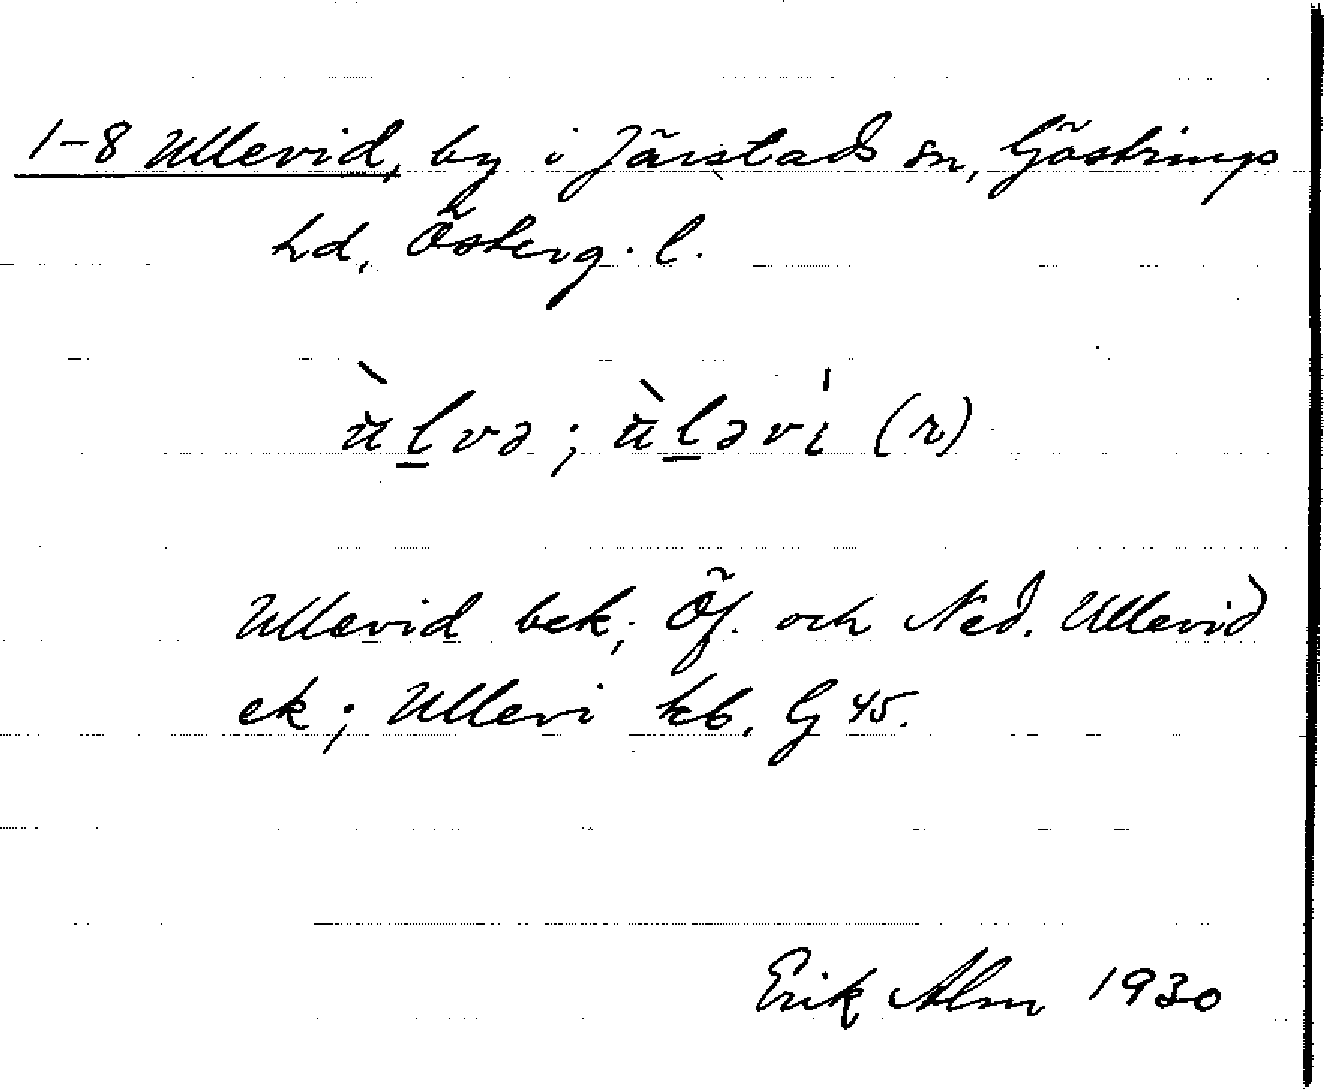 1-8 Ullevid, by i Järstads sn, Göstrings
hd, Österg. l.
ùlvə; ùləvi (r)
Ullevid bek; Öf. och Ned. Ullevid
ek; Ullevi kb. G 45.
Erik Alm 1930